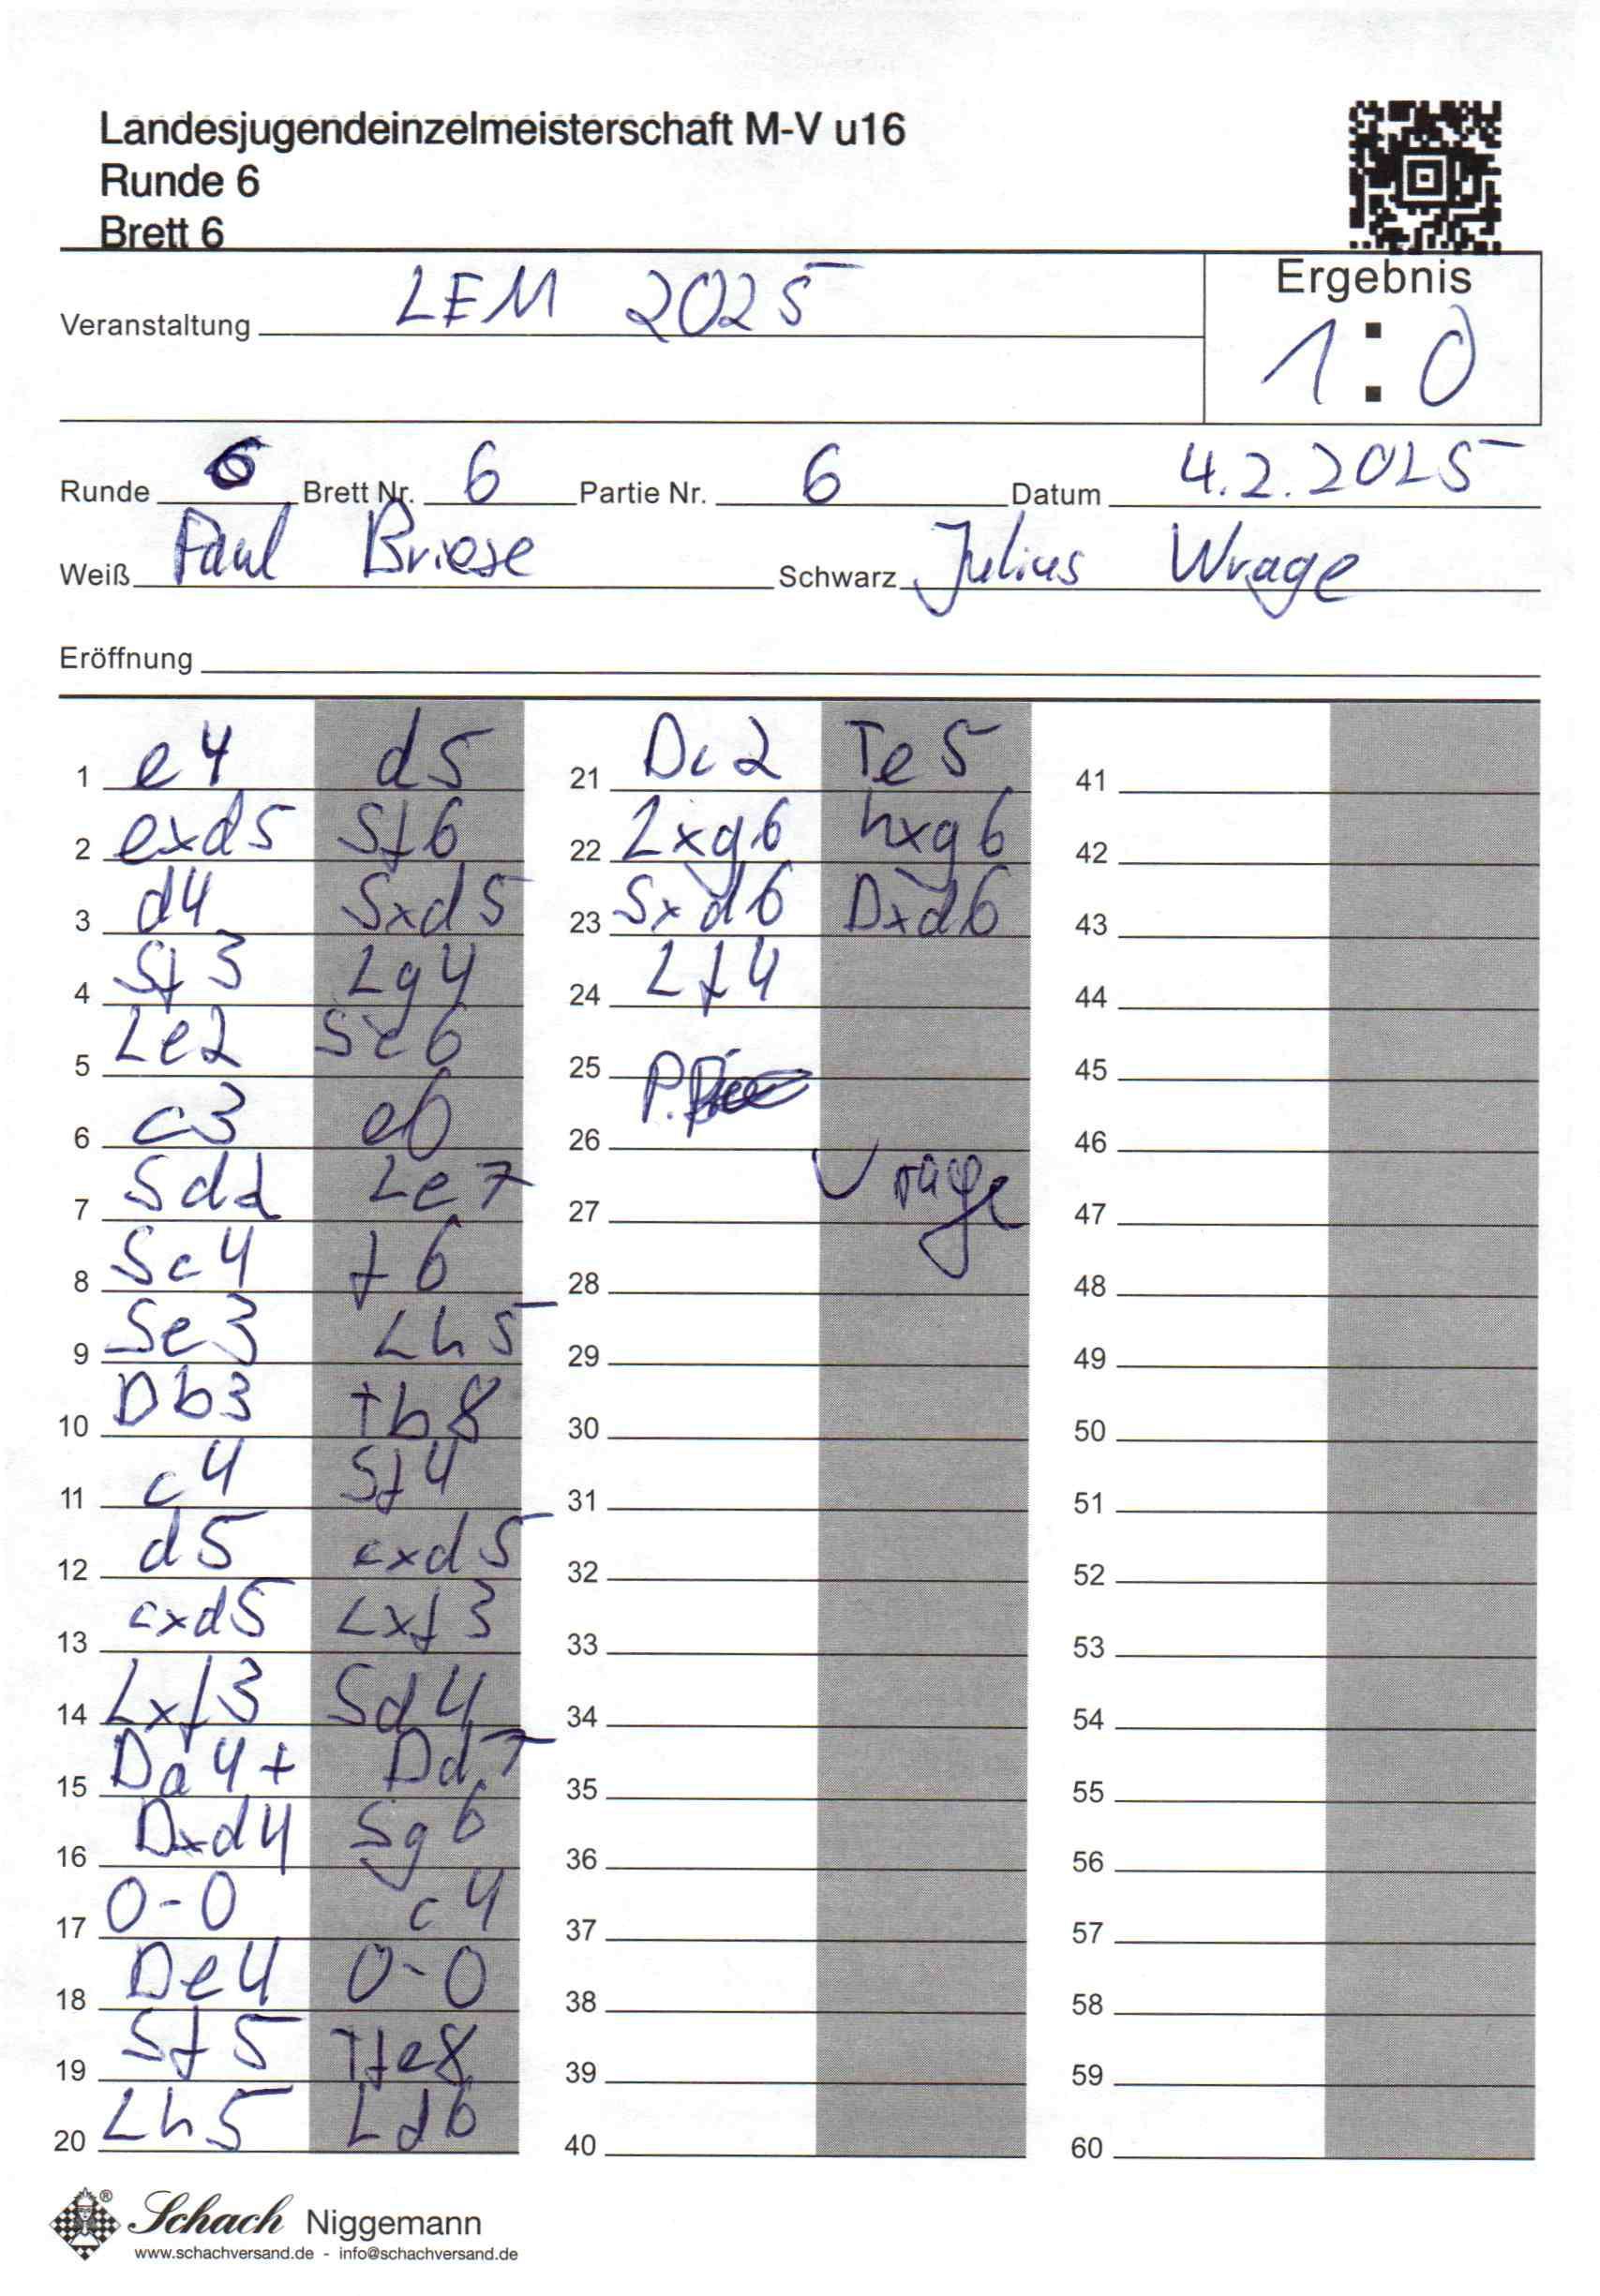 Landesjugendeinzelmeisterschaft M-V u16
Runde 6
Brett 6
Veranstaltung LEM 2025
Ergebnis
1:0
Runde 6 Brett Nr. 6 Partie Nr. 6 Datum 4.2.2025
Weiß Paul Briese Schwarz Julius Wrage
Eröffnung
1 e4 d5 21 Dc2 Te5 41
2 exd5 Sf6 22 Lxg6 hxg6 42
3 d4 Sxd5 23 Sxd6 Dxd6 43
4 Sf3 Lg4 24 Lf4 44
5 Le2 Sc6 25 45
6 c3 e6 26 P. 46
7 Sd2 Le7 27 Wrage 47
8 Sc4 f6 28 48
9 Se3 Lh5 29 49
10 Db3 Tb8 30 50
11 c4 Sf4 31 51
12 d5 exd5 32 52
13 cxd5 Lxf3 33 53
14 Lxf3 Sd4 34 54
15 Da4+ Dd7 35 55
16 Dxd4 Sg6 36 56
17 0-0 c4 37 57
18 De4 0-0 38 58
19 Sf5 Tfe8 39 59
20 Lh5 Ld6 40 60
Schach Niggemann
www.schachversand.de - info@schachversand.de